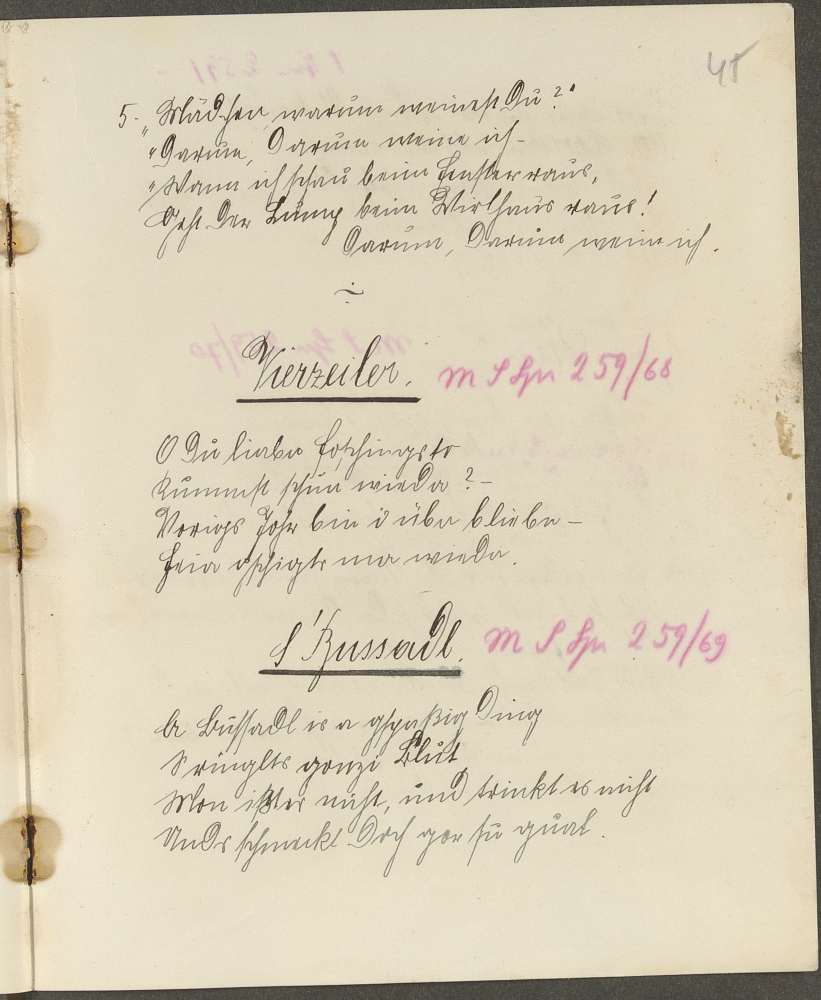 45
5. „Mädchen, warum weinest Du?"
"Darum, Darum weine ich -
"Wann ich schau beim Fenster raus,
Geht Der Lump beim Wirthaus raus!
Darum, Darum weine ich.
Vierzeiler. M S Spr 259/68
O Du liaba Foschingsto
Kummst schun wieda? -
Vorigs Johr bin i über bliebn -
Heia gschigts ma wieda.
S'Bussadl. M S Spr 259/69
A Bussadl is a gspaßig Ding
S ringlts gonzi Blut
Mon ißt es nicht, und trinkt es nicht
Und s schmeckt Doch gor su guat.